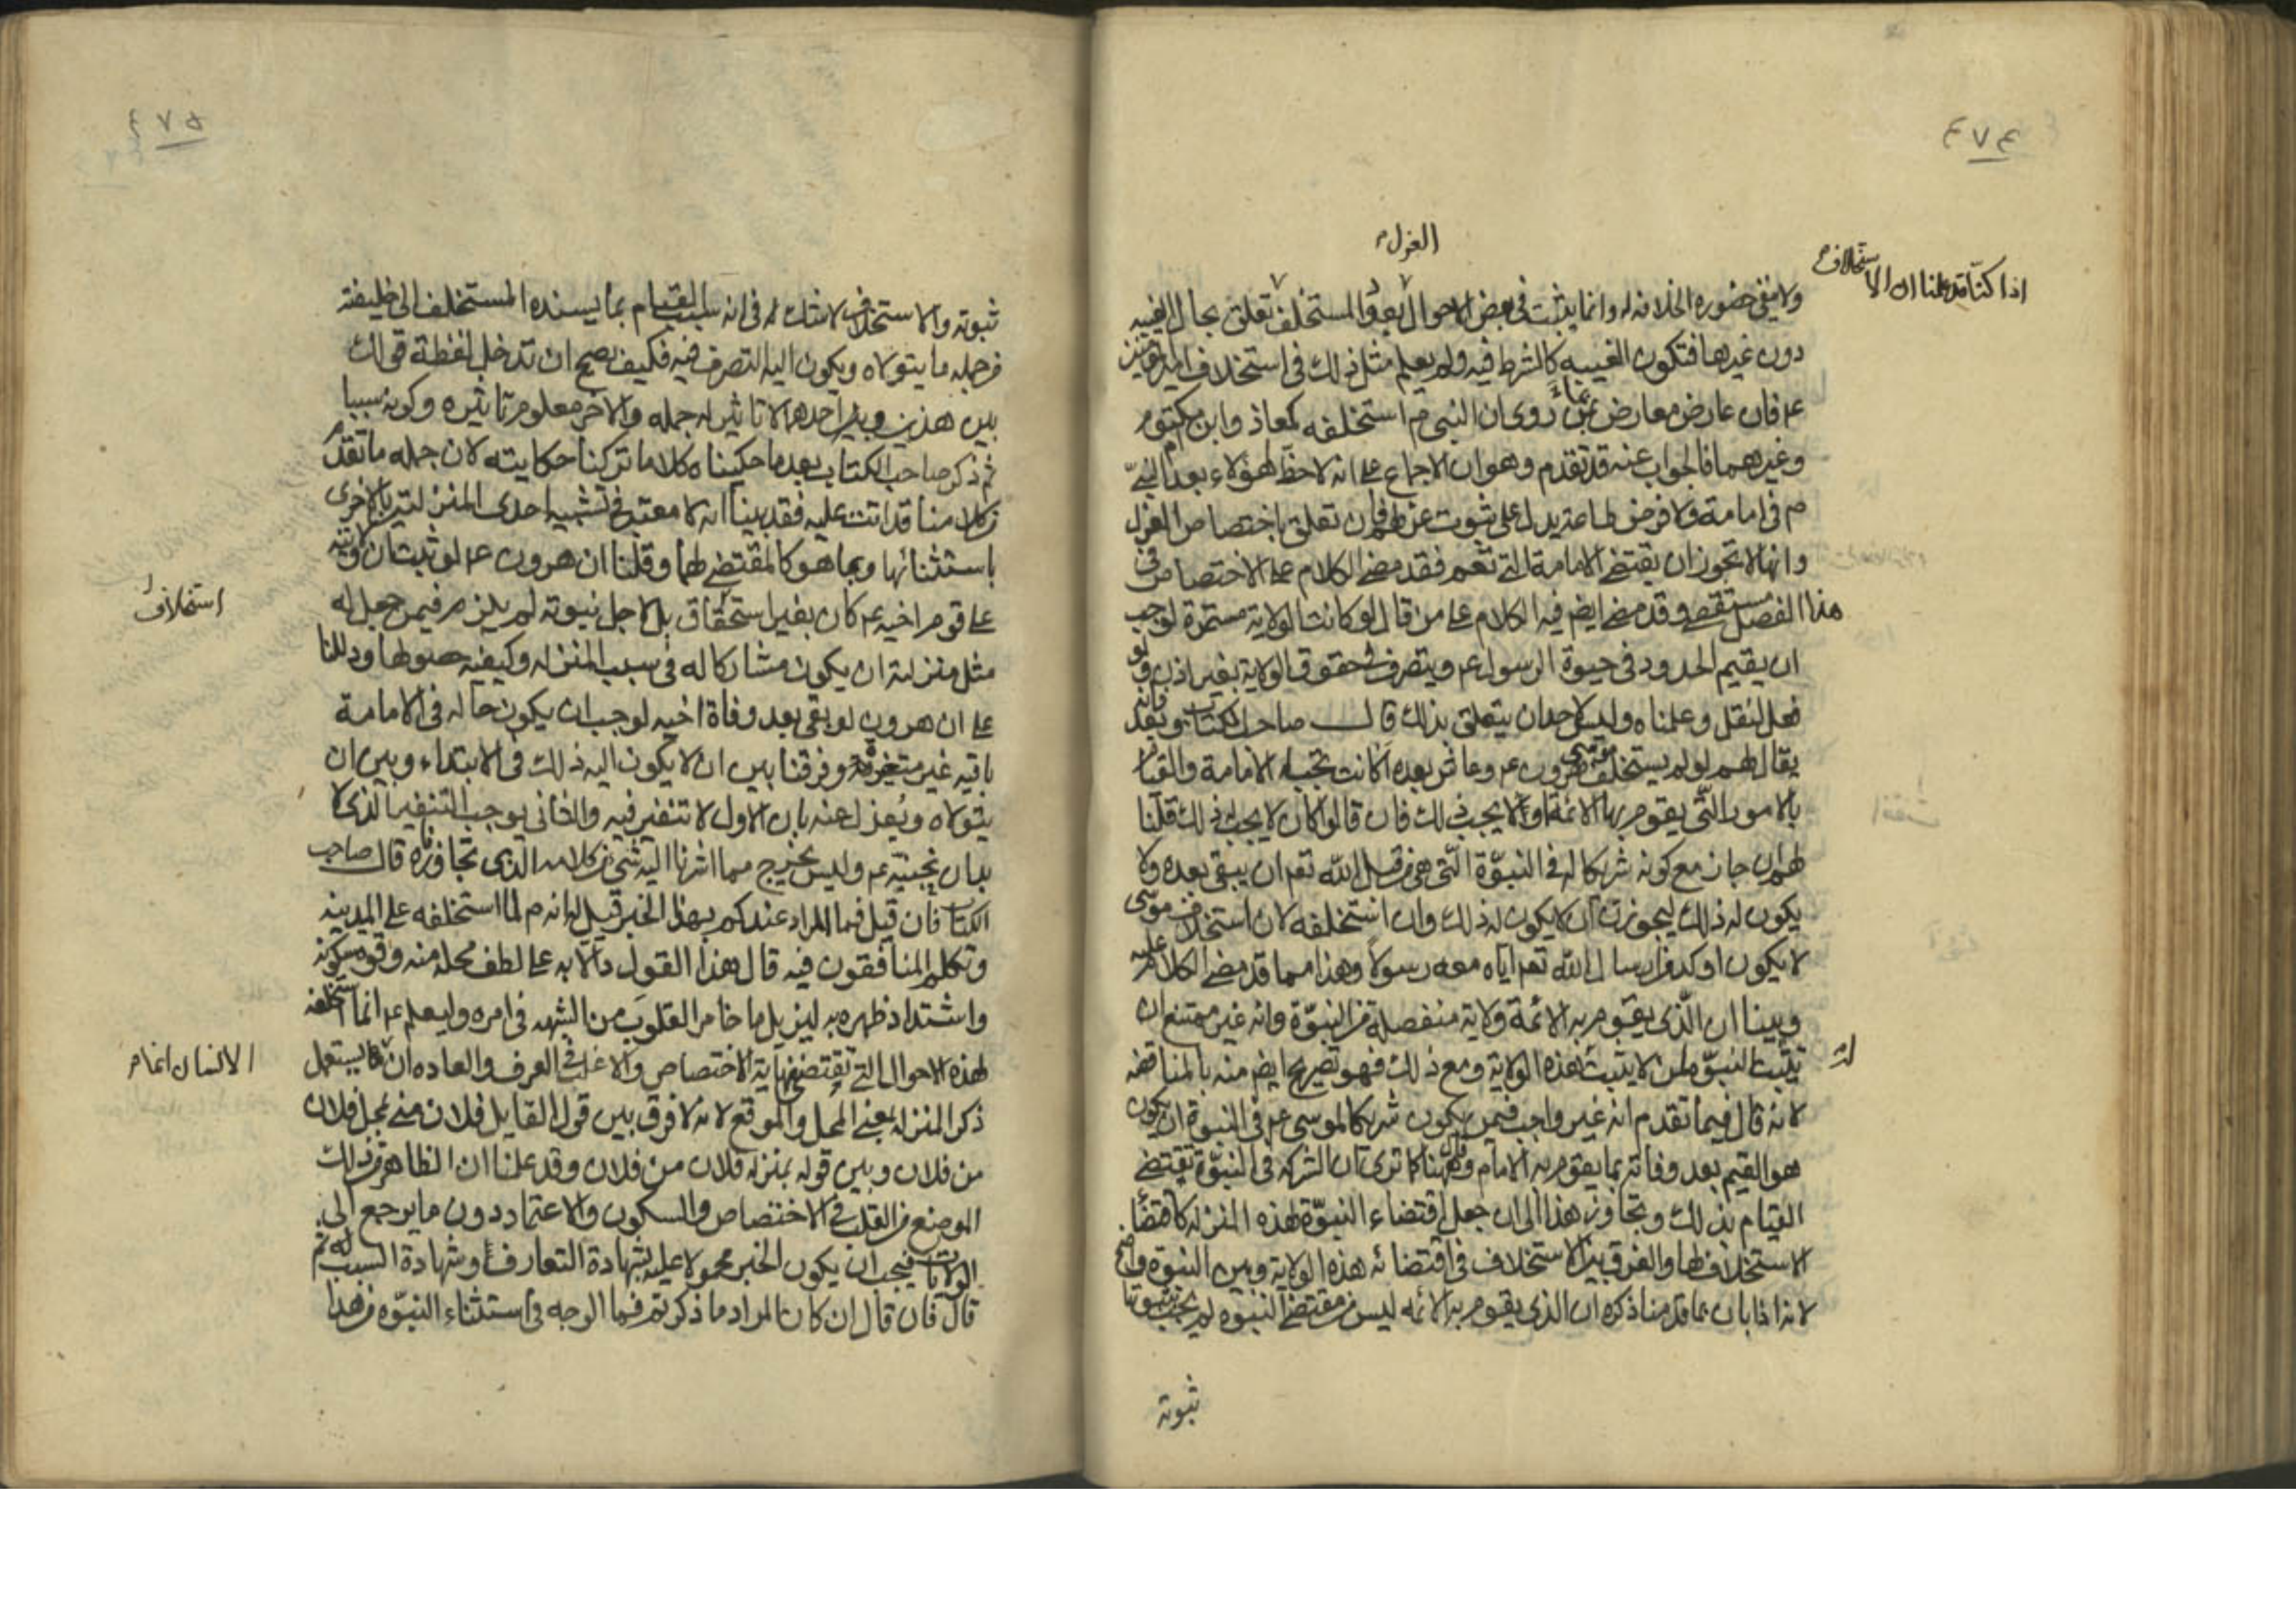 ٤٧٤
العزل م
اذا كنّا قد علمنا ان الاستخلاف م
ولا ينفي حضوره الخلافة له وانما يثبت في بعض الاحوال بعد والمستخلف تعلق بحال الغيبه
دون غيرها فتكون الغيبه كالشرط فيه ولم يعلم مثل ذلك في استخلاف امير المؤمنين
عم فان عارض معارض بمن روى ان النبي م استخلفه كمعاذ وابن ام مكتوم
وغيرهما فالجواب عنه قد تقدم وهو ان الاجماع على انه لا حظّ لهؤلاء بعد النبيّ
م في امامة ولا فرض طاعة يدل على ثبوت عزلهم فان تعلق باختصاص العزل
وانها لا تجوز ان يقتضي الامامة التي تعم فقد مضى الكلام على الاختصاص في
هذا الفصل مستقصى وقد مضى ايضم فيه الكلام على من قال لو كانت الولاية مستمرة لوجب
ان يقيم الحدود في حيوة الرسول عم ويتصرف في حقوق الولاية بغير اذن ولو
فعل لنقل وعلمناه وليس لاحد ان يتعلق بذلك قال صاحب الكتاب وبعد فانه
يقال لهم لو لم يستخلف موسى هرون عم وعاش بعده اكانت تجب له الامامة والقيام
بالامور التّي يقوم بها الائمة او لا يجب ذلك فان قالوا كان لا يجب ذلك قلنا
لهم ان جاز مع كونه شريكا له في النبوّة الّتي هي من قبل الله تعم ان يبقى بعده ولا
يكون له ذلك ليجوزن ان لا يكون له ذلك وان استخلفه لان استخلاف موسى
لا يكون اوكد من ارسال الله تعم اياه معه رسولا وهذا مما قد مضى الكلام عليه
وبينا ان الّذي يقوم به الائمة ولاية منفصلة من النبوّة وانه غير ممتنع ان
تثبت النبوّة لمن لا يثبت له هذه الولاية ومع ذلك فهو تصريح ايضم منه بالمناقضه
لانه قال فيما تقدم انه غير واجب فيمن يكون شريكا لموسى عم في النبوة ان يكون
هو القيم بعد وفاته بما يقوم به الامام وقال ههنا كما ترى ان الشركه في النبوّة تقتضي
القيام بذلك وتجاوز هذا الى ان جعل اقتضاء النبوّة لهذه المنزله كاقتضاء
الاستخلاف لها والفرق بين الاستخلاف في اقتضائه هذه الولاية وبين النبوة واضح
لانه اذا بان بما قدمنا ذكره ان الذي يقوم به الائمه ليس من مقتضى النبوه لم يجب بثبوتها
ثبوته
٤٧٥
ثبوته والاستخلاف لا شك له في انه سبب القيام بما يسنده المستخلف الى خليفته
من جمله ما يتولاه ويكون اليه التصرف فيه فكيف يصح ان تدخل لفظة قولك
بين هذين وبين احدهما لا تاثير له جمله والاخر معلوم تاثيره وكونه سببا
ثم ذكر صاحب الكتاب بعد ما حكيناه كلاما تركنا حكايته لان جمله ما تقدم
من كلامنا قد اتت عليه فقد بينا انه لا معتبر في تشبيه احدى المنزلتين بالاخرى
باستثنائها وبما هو كالمقتضي لها وقلنا ان هرون عم لو ثبت ان ولايته
على قوم اخيه عم كان بغير استحقاق بل لاجل نبوته لم يلزم فيمن جعل له
استخلاف
مثل منزلته ان يكون مشاركا له في سبب المنزله وكيفيه حصولها ودللنا
على ان هرون لو بقي بعد وفاة اخيه لوجب ان يكون حاله في الامامة
باقيه غير متغيرة وفرقنا بين ان لا يكون اليه ذلك في الابتداء وبين ان
يتولاه ويعزل عنه بان الاول لا تنفير فيه والثاني يوجب التنفير الذي لا
بد ان يجنبه عم وليس يخرج مما اشرنا اليه شيء من كلامه الذي تجاوزناه قال صاحب
الكتاب فان قيل فما المراد عندكم بهذا الخبر قيل له انه م لما استخلفه على المدينه
وتكلم المنافقون فيه قال هذا القول دالا به على لطف محله منه وقوة سكونه
واشتداد ظهره به ليزيل ما خامر القلوب من الشبه في امره وليعلم عم انما استخلفه
لهذه الاحوال التي تقتضي نهاية الاختصاص والاغلب في العرف والعاده ان يستعمل
الانسان انما م
ذكر المنزله بمعنى المحل والموقع لانه لا فرق بين قول القايل فلان مني بمحل فلان
من فلان وبين قوله بمنزله فلان من فلان وقد علمنا ان الظاهر من ذلك
الموضع من القلب في الاختصاص والسكون والاعتماد دون ما يرجع الى
الولايات فيجب ان يكون الخبر محمولا عليه بشهادة التعارف وشهادة السبب له ثم
قال فان قال ان كان المراد ما ذكرتم فما الوجه في استثناء النبوّه من هذا